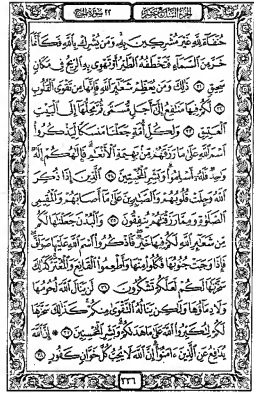 الجزء السابع عشر ٢٢ سورة الحج
حنفاء لله غير مشركين به ومن يشرك بالله فكأنما
خر من السماء فتخطفه الطير أو تهوي به الريح في مكان
سحيق ٣١ ذلك ومن يعظم شعائر الله فإنها من تقوى القلوب
٣٢ لكم فيها منافع إلى أجل مسمى ثم محلها إلى البيت
العتيق ٣٣ ولكل أمة جعلنا منسكا ليذكروا
اسم الله على ما رزقهم من بهيمة الأنعام فإلهكم إله
واحد فله أسلموا وبشر المخبتين ٣٤ الذين إذا ذكر
الله وجلت قلوبهم والصابرين على ما أصابهم والمقيمي
الصلوة ومما رزقناهم ينفقون ٣٥ والبدن جعلناها لكم
من شعائر الله لكم فيها خير فاذكروا اسم الله عليها صواف
فإذا وجبت جنوبها فكلوا منها وأطعموا القانع والمعتر كذلك
سخرناها لكم لعلكم تشكرون ٣٦ لن ينال الله لحومها
ولا دماؤها ولكن يناله التقوى منكم كذلك سخرها
لكم لتكبروا الله على ما هداكم وبشر المحسنين ٣٧ إن الله
يدافع عن الذين آمنوا إن الله لا يحب كل خوان كفور ٣٨
٣٣٦